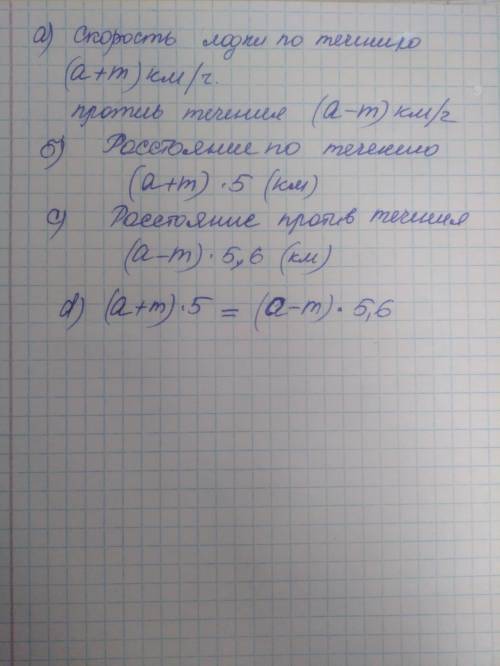 а) Скорость лодки по течению
(a+m) км/ч.
против течения (a-m) км/ч
б) Расстояние по течению
(a+m)·5 (км)
c) Расстояние против течения
(a-m)·5,6 (км)
d) (a+m)·5 = (a-m)·5,6